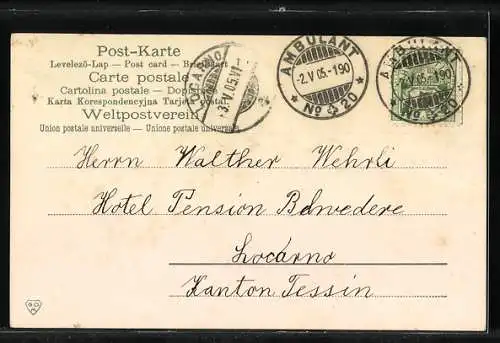 Post-Karte
Levelező-Lap — Post card — Brief
Carte postale
Cartolina postale — Dop
Karta Korespondencyjna Tarjeta postal
Weltpostverein
Union postale universelle — Unione postale universale
LOCARNO
3.V.05.VI
AMBULANT
-2.V 05.-190
No 20
AMBULANT
V 05.-190
No 20
Herrn Walther Wehrli
Hotel Pension Belvedere
Locarno
Kanton Tessin